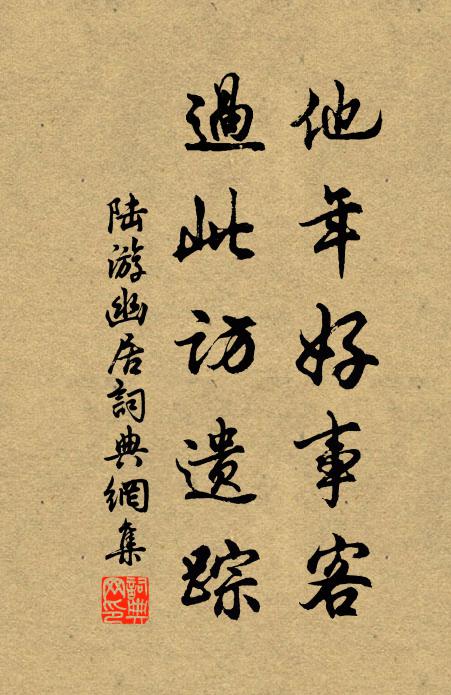 他年好事客
過此访遗踪
陆游幽居詞典網集
詞典网印